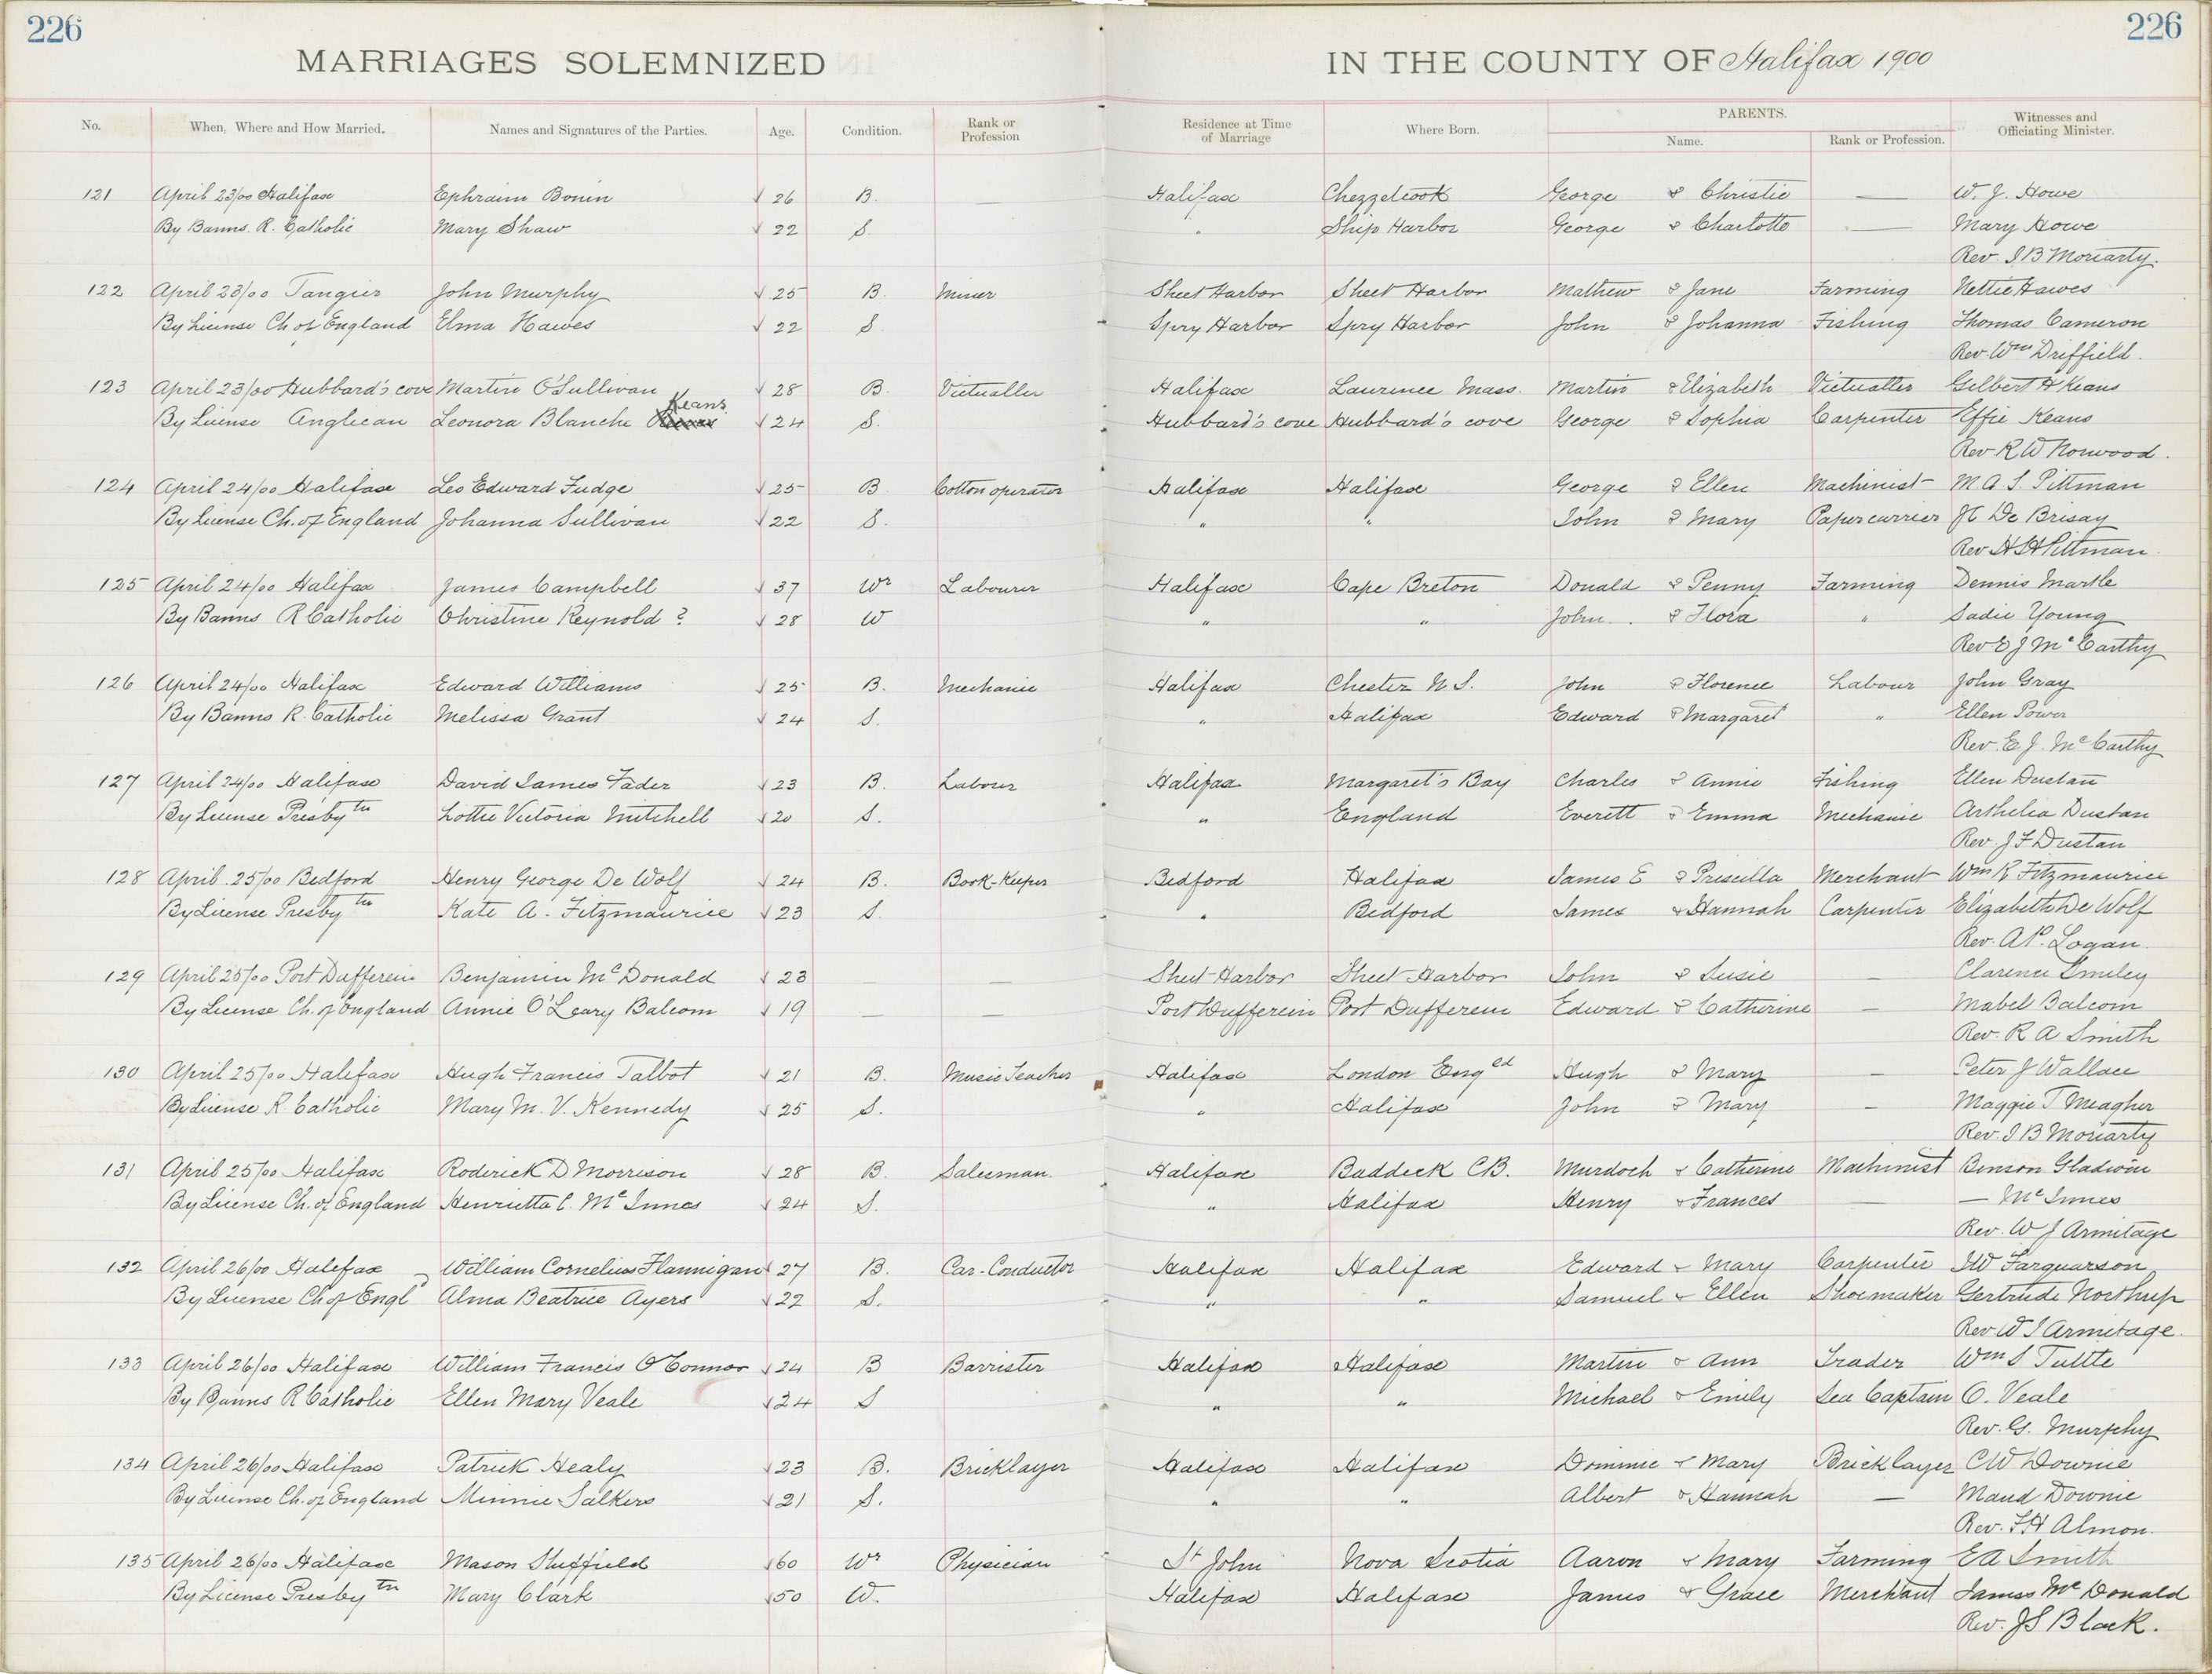 226
226
MARRIAGES SOLEMNIZED
IN THE COUNTY OF Halifax 1900
No. When, Where and How Married. Names and Signatures of the Parties. Age. Condition. Rank or Profession Residence at Time of Marriage Where Born. PARENTS. Name. Rank or Profession. Witnesses and Officiating Minister.
121 April 23/00 Halifax Ephraim Bonin √ 26 B. — Halifax Chezzetcook George & Christie — W. J. Howe
By Banns. R. Catholic Mary Shaw √ 22 S. " Ship Harbor George & Charlotte — Mary Howe
Rev. J B Moriarty.
122 April 23/00 Tangier John Murphy √ 25 B. Miner Sheet Harbor Sheet Harbor Mathew & Jane Farming Nettie Hawes
By License Ch of England Elma Hawes √ 22 S. Spry Harbor Spry Harbor John & Johanna Fishing Thomas Cameron
Rev. Wm Driffield.
123 April 23/00 Hubbard's cove Martin O'Sullivan √ 28 B. Victualler Halifax Laurence Mass. Martin & Elizabeth Victualler Gilbert H Keans
By License Anglican Leonora Blanche Keans √ 24 S. Hubbard's cove Hubbard's cove George & Sophia Carpenter Effie Keans
Rev. R W Norwood.
124 April 24/00 Halifax Leo Edward Fudge √ 25 B Cotton operator Halifax Halifax George & Ellen Machinist M A S. Pittman
By License Ch. of England Johanna Sullivan √ 22 S. " " John & Mary Paper carrier De Brisay
Rev H H Pittman.
125 April 24/00 Halifax James Campbell √ 37 Wr Labourer Halifax Cape Breton Donald & Penny Farming Dennis Martle
By Banns R Catholic Christine Reynold ? √ 28 W " " John & Flora " Sadie Young
Rev E J McCarthy
126 April 24/00 Halifax Edward Williams √ 25 B. Mechanic Halifax Chester N S. John & Florence Labour John Gray
By Banns R. Catholic Melissa Grant √ 24 S. " Halifax Edward & Margaret " Ellen Power
Rev. E. J. McCarthy
127 April 24/00 Halifax David James Fader √ 23 B. Labour Halifax Margaret's Bay Charles & Annie Fishing Ellen Dustan
By License Presbytn Lottie Victoria Mitchell √ 20 S. " England Everett & Emma Mechanic Arthelia Dustan
Rev. J F Dustan
128 April. 25/00 Bedford Henry George De Wolf √ 24 B. Book-Keeper Bedford Halifax James E & Priscilla Merchant Wm R Fitzmaurice
By License Presbytn Kate A. Fitzmaurice √ 23 S. " Bedford James & Hannah Carpenter Elizabeth De Wolf
Rev. A P. Logan.
129 April 25/00 Port Dufferein Benjamin McDonald √ 23 — — Sheet Harbor Sheet Harbor John & Susie — Clarence Smiley
By License Ch. of England Annie O'Leary Balcom √ 19 — — Port Dufferein Port Dufferein Edward & Catherine — Mabel Balcom
Rev. R A Smith
130 April 25/00 Halifax Hugh Francis Talbot √ 21 B. Music Teacher Halifax London Eng Hugh & Mary — Peter J Wallace
By License R Catholic Mary M. V. Kennedy √ 25 S. " Halifax John & Mary — Maggie T Meagher
Rev. J B Moriarty
131 April 25/00 Halifax Roderick D Morrison √ 28 B. Salesman. Halifax Baddeck C B. Murdoch & Catherine Machinist Benson Gladwin
By License Ch. of England Henrietta C. McInnes √ 24 S. " Halifax Henry & Frances — — McInnes
Rev. W J Armitage
132 April 26/00 Halifax William Cornelius Flannigan √ 27 B. Car-Conductor Halifax Halifax Edward & Mary Carpenter J W Farquarson
By License Ch of Engl Alma Beatrice Ayers √ 22 S. " " Samuel & Ellen Shoemaker Gertrude Northup
Rev W J Armitage.
133 April 26/00 Halifax William Francis O'Connor √ 24 B Barrister Halifax Halifax Martin & Ann Trader Wm S Tuttle
By Banns R Catholic Ellen Mary Veale √ 24 S " " Michael & Emily Sea Captain O. Veale
Rev. G. Murphy
134 April 26/00 Halifax Patrick Healy √ 23 B. Bricklayer Halifax Halifax Dominic & Mary Bricklayer C W Downie
By License Ch. of England Minnie Salkers √ 21 S. " " Albert & Hannah — Maud Downie
Rev. F H Almon.
135 April 26/00 Halifax Mason Sheffield √ 60 Wr Physician St John Nova Scotia Aaron & Mary Farming E A Smith
By License Presbytn Mary Clark √ 50 W. Halifax Halifax James & Grace Merchant James McDonald
Rev. J S Black.